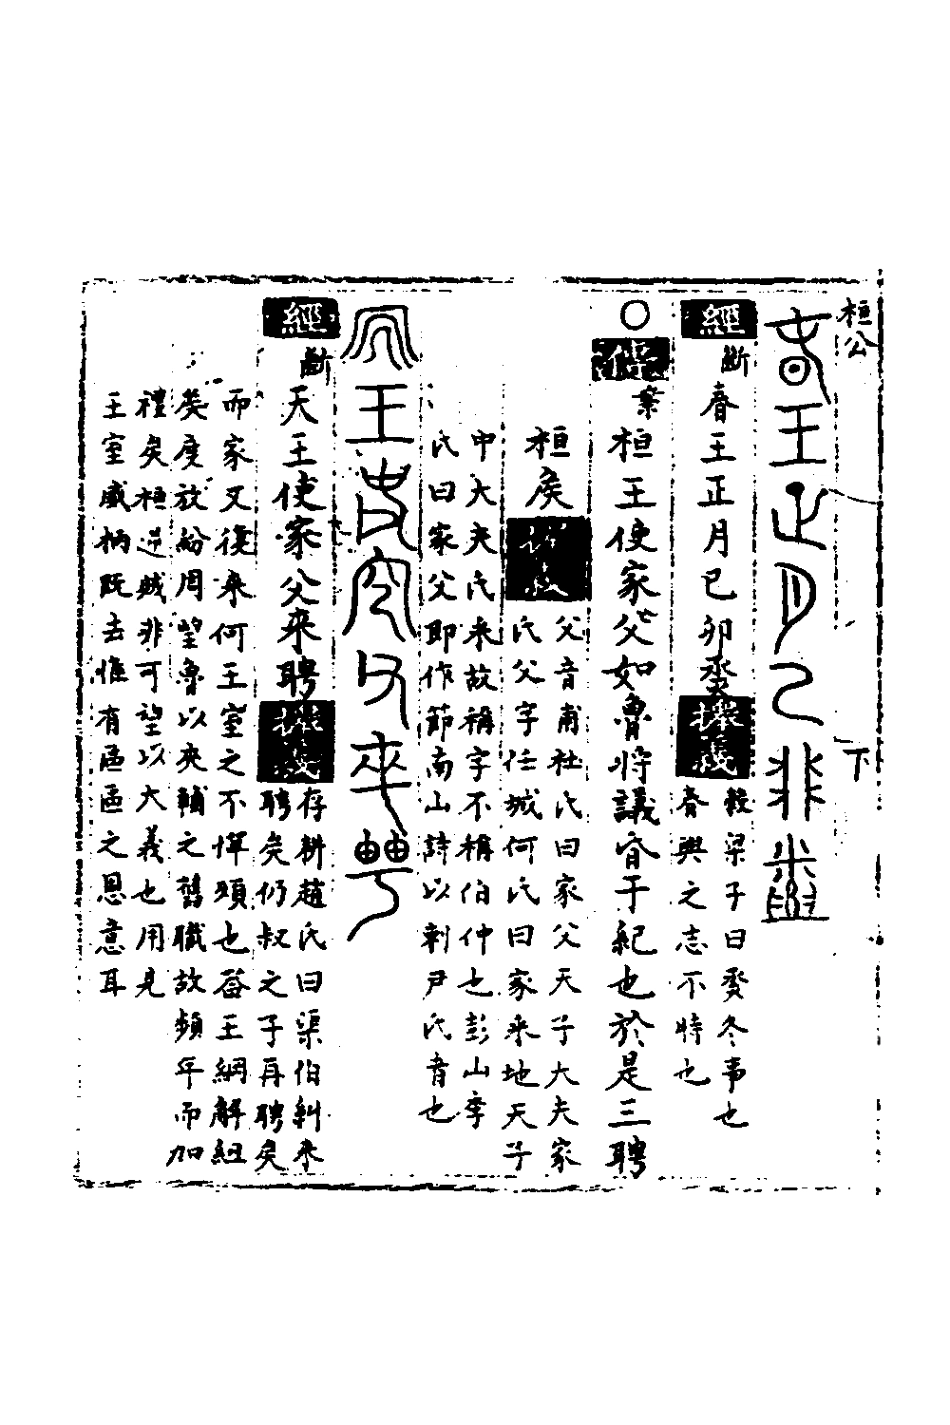 桓公
下
春王正月己卯烝
經
斷
春王正月已卯烝
穀梁子曰烝冬事也
春興之志不時也
○
傳
案
桓王使家父如魯將議昏于紀也於是三聘
桓矦
父音甫杜氏曰家父天子大夫家
氏父字任城何氏曰家采地天子
中大夫氏采故稱字不稱伯仲也彭山季
氏曰家父即作節南山詩以刺尹氏者也
天王使家父來聘
經
斷
天王使家父來聘
存耕趙氏曰渠伯糾來
聘矣仍叔之子再聘矣
而家又復來何王室之不憚煩也啓王綱解紐
矣度放紛周望魯以夾輔之舊職故頻年而加
禮矣桓逆賊非可望以大義也用見
王室威柄既去惟有區區之恩意耳